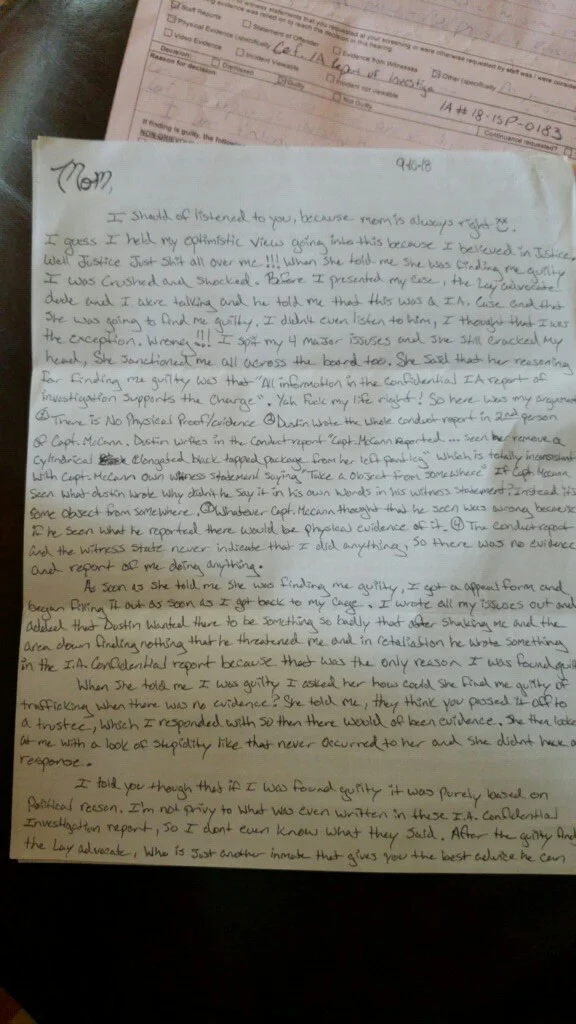 evidence or witness statements that you requested at your screening or were otherwise requested by staff
evidence was relied on to reach the decision in this hearing
Staff Reports
Statement of Offender
Evidence from Witnesses
Physical Evidence (specifically)
Other (specifically)
Video Evidence
Incident Viewable
Incident not viewable
Conf. IA Report of Investiga
Decision:
Dismissed
Guilty
Not Guilty
IA # 18-ISP-0183
Reason for decision:
Continuance requested?
If finding is guilty, the following
9-10-18
Mom,
I should of listened to you, because mom is always right
I guess I held my optimistic view going into this because I believed in Justice.
Well Justice Just shit all over me!!! When she told me she was finding me guilty
I was crushed and shocked. Before I presented my case, the Lay advocate
dude and I were talking and he told me that this was a I.A. case and that
she was going to find me guilty. I didn't even listen to him, I thought that I was
the exception. Wrong!!! I spit my 4 major issues and she still cracked my
head, She sanctioned me all across the board too. She said that her reasoning
for finding me guilty was that "All information in the confidential IA report of
investigation supports the charge". Yah fuck my life right! So here was my argument
① There is No Physical Proof/evidence ② Dustin wrote the whole conduct report in 2nd person
of Capt. McCann. Dustin writes in the conduct report "Capt. McCann reported ... seen her remove a
cylindrical elongated black tapped package from her left pant leg" which is totally inconsistent
with Capt. McCann own witness statement saying "Take a object from somewhere" If Capt. McCann
seen what dustin wrote why didn't he say it in his own words in his witness statement? Instead its
some object from somewhere. ③ Whatever Capt. McCann thought that he seen was wrong because
if he seen what he reported there would be physical evidence of it. ④ The conduct report
and the witness state never indicate that I did anything, so there was no evidence
and report of me doing anything.
As soon as she told me she was finding me guilty, I got a appeal form and
began filling it out as soon as I got back to my cage. I wrote all my issues out and
added that Dustin wanted there to be something so badly that after shaking me and the
area down finding nothing that he threatened me and in retaliation he wrote something
in the I.A. Confidential report because that was the only reason I was found guil
When she told me I was guilty I asked her how could she find me guilty of
trafficking when there was no evidence? She told me, they think you passed it off to
a trustee, which I responded with so then there would of been evidence. She then looke
at me with a look of stupidity like that never occurred to her and she didn't have a
response.
I told you though that if I was found guilty it was purely based on
Political reason. I'm not privy to what was even written in these I.A. Confidential
Investigation report, so I dont even know what they said. After the guilty find
the Lay advocate, who is just another inmate that gives you the best advice he can